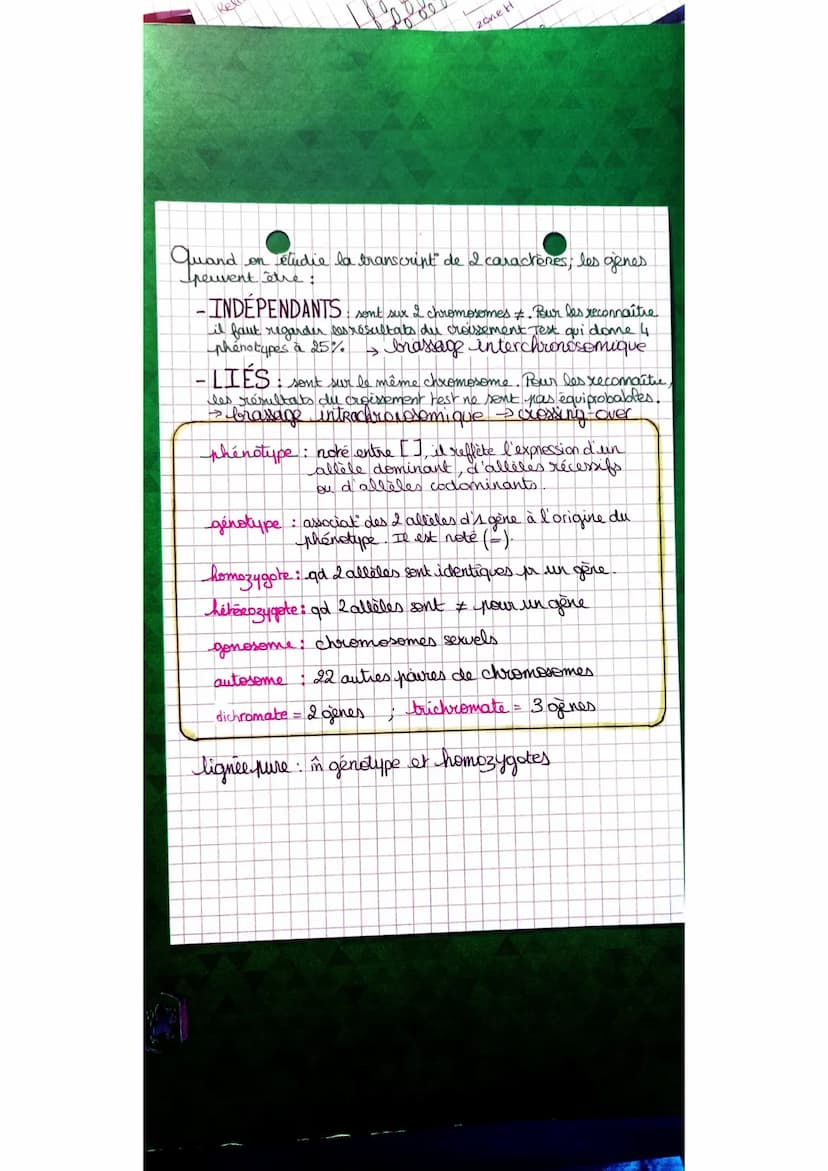 zone H
Quand on étudie la transcript° de 2 caractères; les gènes
peuvent être :
- INDÉPENDANTS : sont sur 2 chromosomes ≠. Pour les reconnaître
il faut regarder les résultats du croisement Test qui donne 4
phénotypes à 25% → brassage interchromosomique
- LIÉS : sont sur le même chromosome. Pour les reconnaître,
les résultats du croisement test ne sont pas équiprobables.
→ brassage intrachromosomique → crossing-over
phénotype : noté entre [ ], il reflète l'expression d'un
allèle dominant, d'allèles récessifs
ou d'allèles codominants.
génotype : associat° des 2 allèles d'1 gène à l'origine du
phénotype. Il est noté (=).
homozygote : qd 2 allèles sont identiques pr un gène.
hétérozygote : qd 2 allèles sont ≠ pour un gène
gonosome : chromosomes sexuels
autosome : 22 autres paires de chromosomes
dichromate = 2 gènes ; trichromate = 3 gènes
lignée pure : m̂ génotype et homozygotes